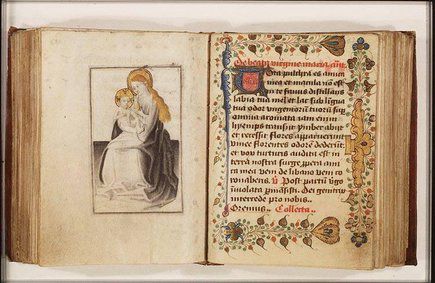 De beata virgine maria ant
Tota pulchra es amica
mea et macula non est
in te fauus distillans
labia tua mel et lac sub lingua
tua odor ungentorum tuorum sup
omnia aromata iam enim
hyemps transiit ymber abiit
et recessit flores apparuerunt
vinee florentes odorem dederunt
et vox turturis audita est in
terra nostra surge propera ami
ca mea veni de libano veni co
ronaberis. V Post partum virgo
inuiolata permansisti. Dei genitrix
intercede pro nobis.
Oremus. Collecta.